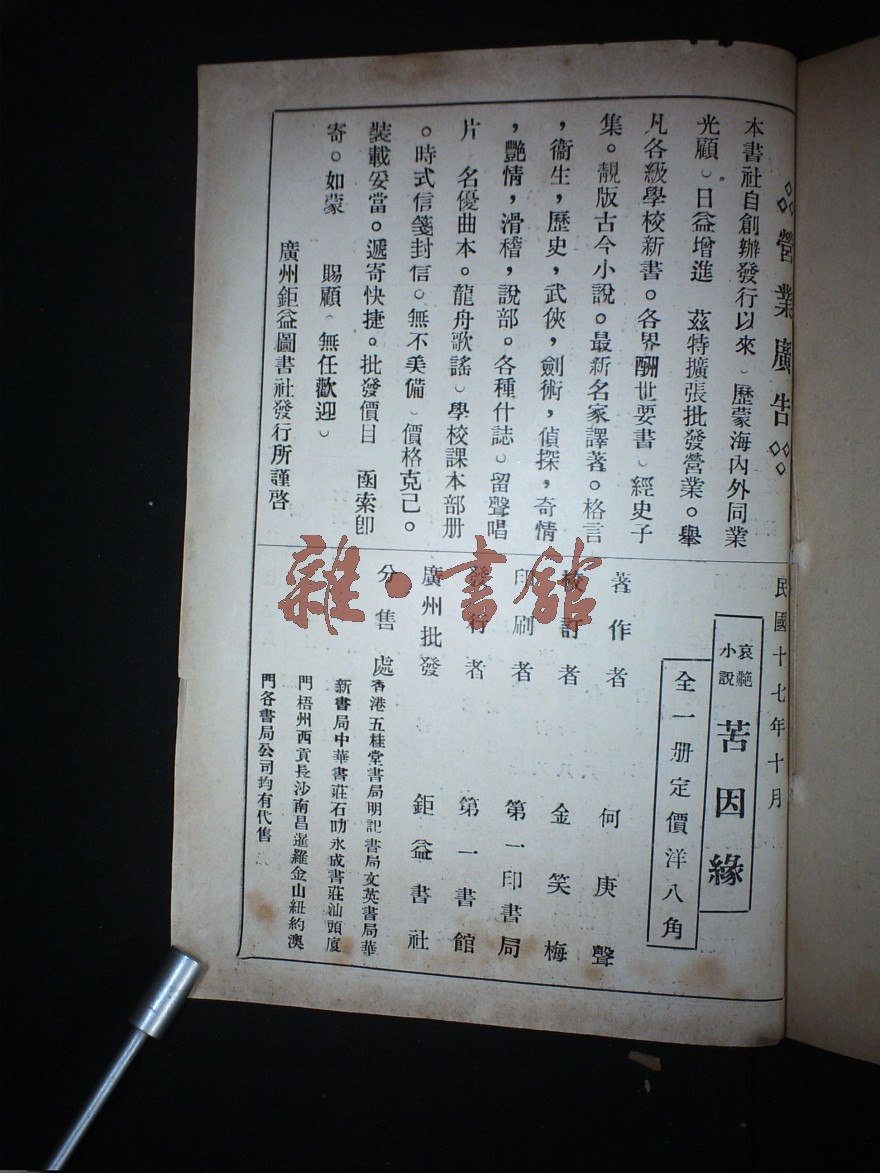 營業廣告
本書社自創辦發行以來﹐歷蒙海內外同業
光顧﹐日益增進 茲特擴張批發營業。舉
凡各級學校新書。各界酬世要書﹐經史子
集。靚版古今小說。最新名家譯著。格言
，衞生，歷史，武俠，劍術，偵探，奇情
，艷情，滑稽，說部。各種什誌﹐留聲唱
片 名優曲本。龍舟歌謠﹐學校課本部册
。時式信箋封信。無不美備﹐價格克己。
裝載妥當。遞寄快捷。批發價目 函索卽
寄。如蒙 賜顧﹐無任歡迎﹐
廣州鉅益圖書社發行所謹啓
民國十七年十月
哀艷小說 苦因緣
全一册定價洋八角
著作者 何庚聲
校訂者 金笑梅
印刷者 第一印書局
發行者 第一書館
廣州批發 鉅益書社
分售處 香港五桂堂書局明記書局文英書局華
新書局中華書莊石叻永成書莊汕頭廈
門梧州西貢長沙南昌暹羅金山紐約澳
門各書局公司均有代售
雜·書舘